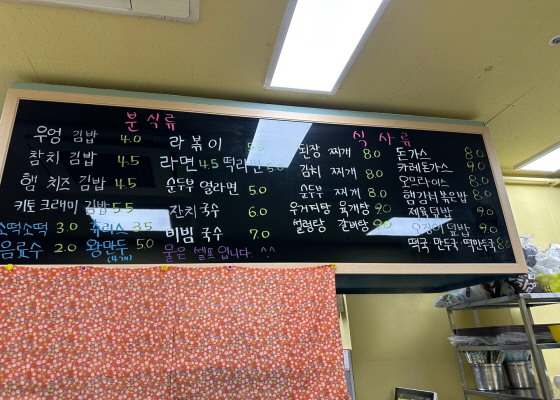 분식류
우엉 김밥 4.0
참치 김밥 4.5
햄 치즈 김밥 4.5
키토 크래미 김밥 5.5
소떡소떡 3.0 쥬리스 3.5
음료수 2.0 왕만두 5.0
(4개)
라볶이 5.5
라면 4.5 떡라면 5.0
순두부 열라면 5.0
잔치국수 6.0
비빔국수 7.0
물은 셀프입니다 ^^
식사류
된장 찌개 8.0
김치 찌개 8.0
순두부 찌개 8.0
우거지탕 육개장 9.0
설렁탕 갈비탕 9.0
돈가스 8.0
카레돈가스 9.0
오므라이스 8.0
햄김치볶은밥 8.0
제육덮밥 9.0
오징어 덮밥 9.0
떡국 만두국 떡만두국 8.0